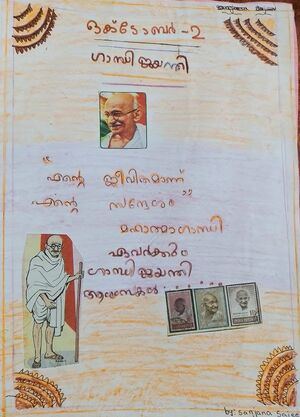 ഒക്ടോബർ -2
ഗാന്ധി ജയന്തി
"എന്റെ ജീവിതമാണ്
എന്റെ സന്ദേശം"
മഹാത്മാഗാന്ധി
ഏവർക്കും
ഗാന്ധി ജയന്തി
ആശംസകൾ......
by: sanjana